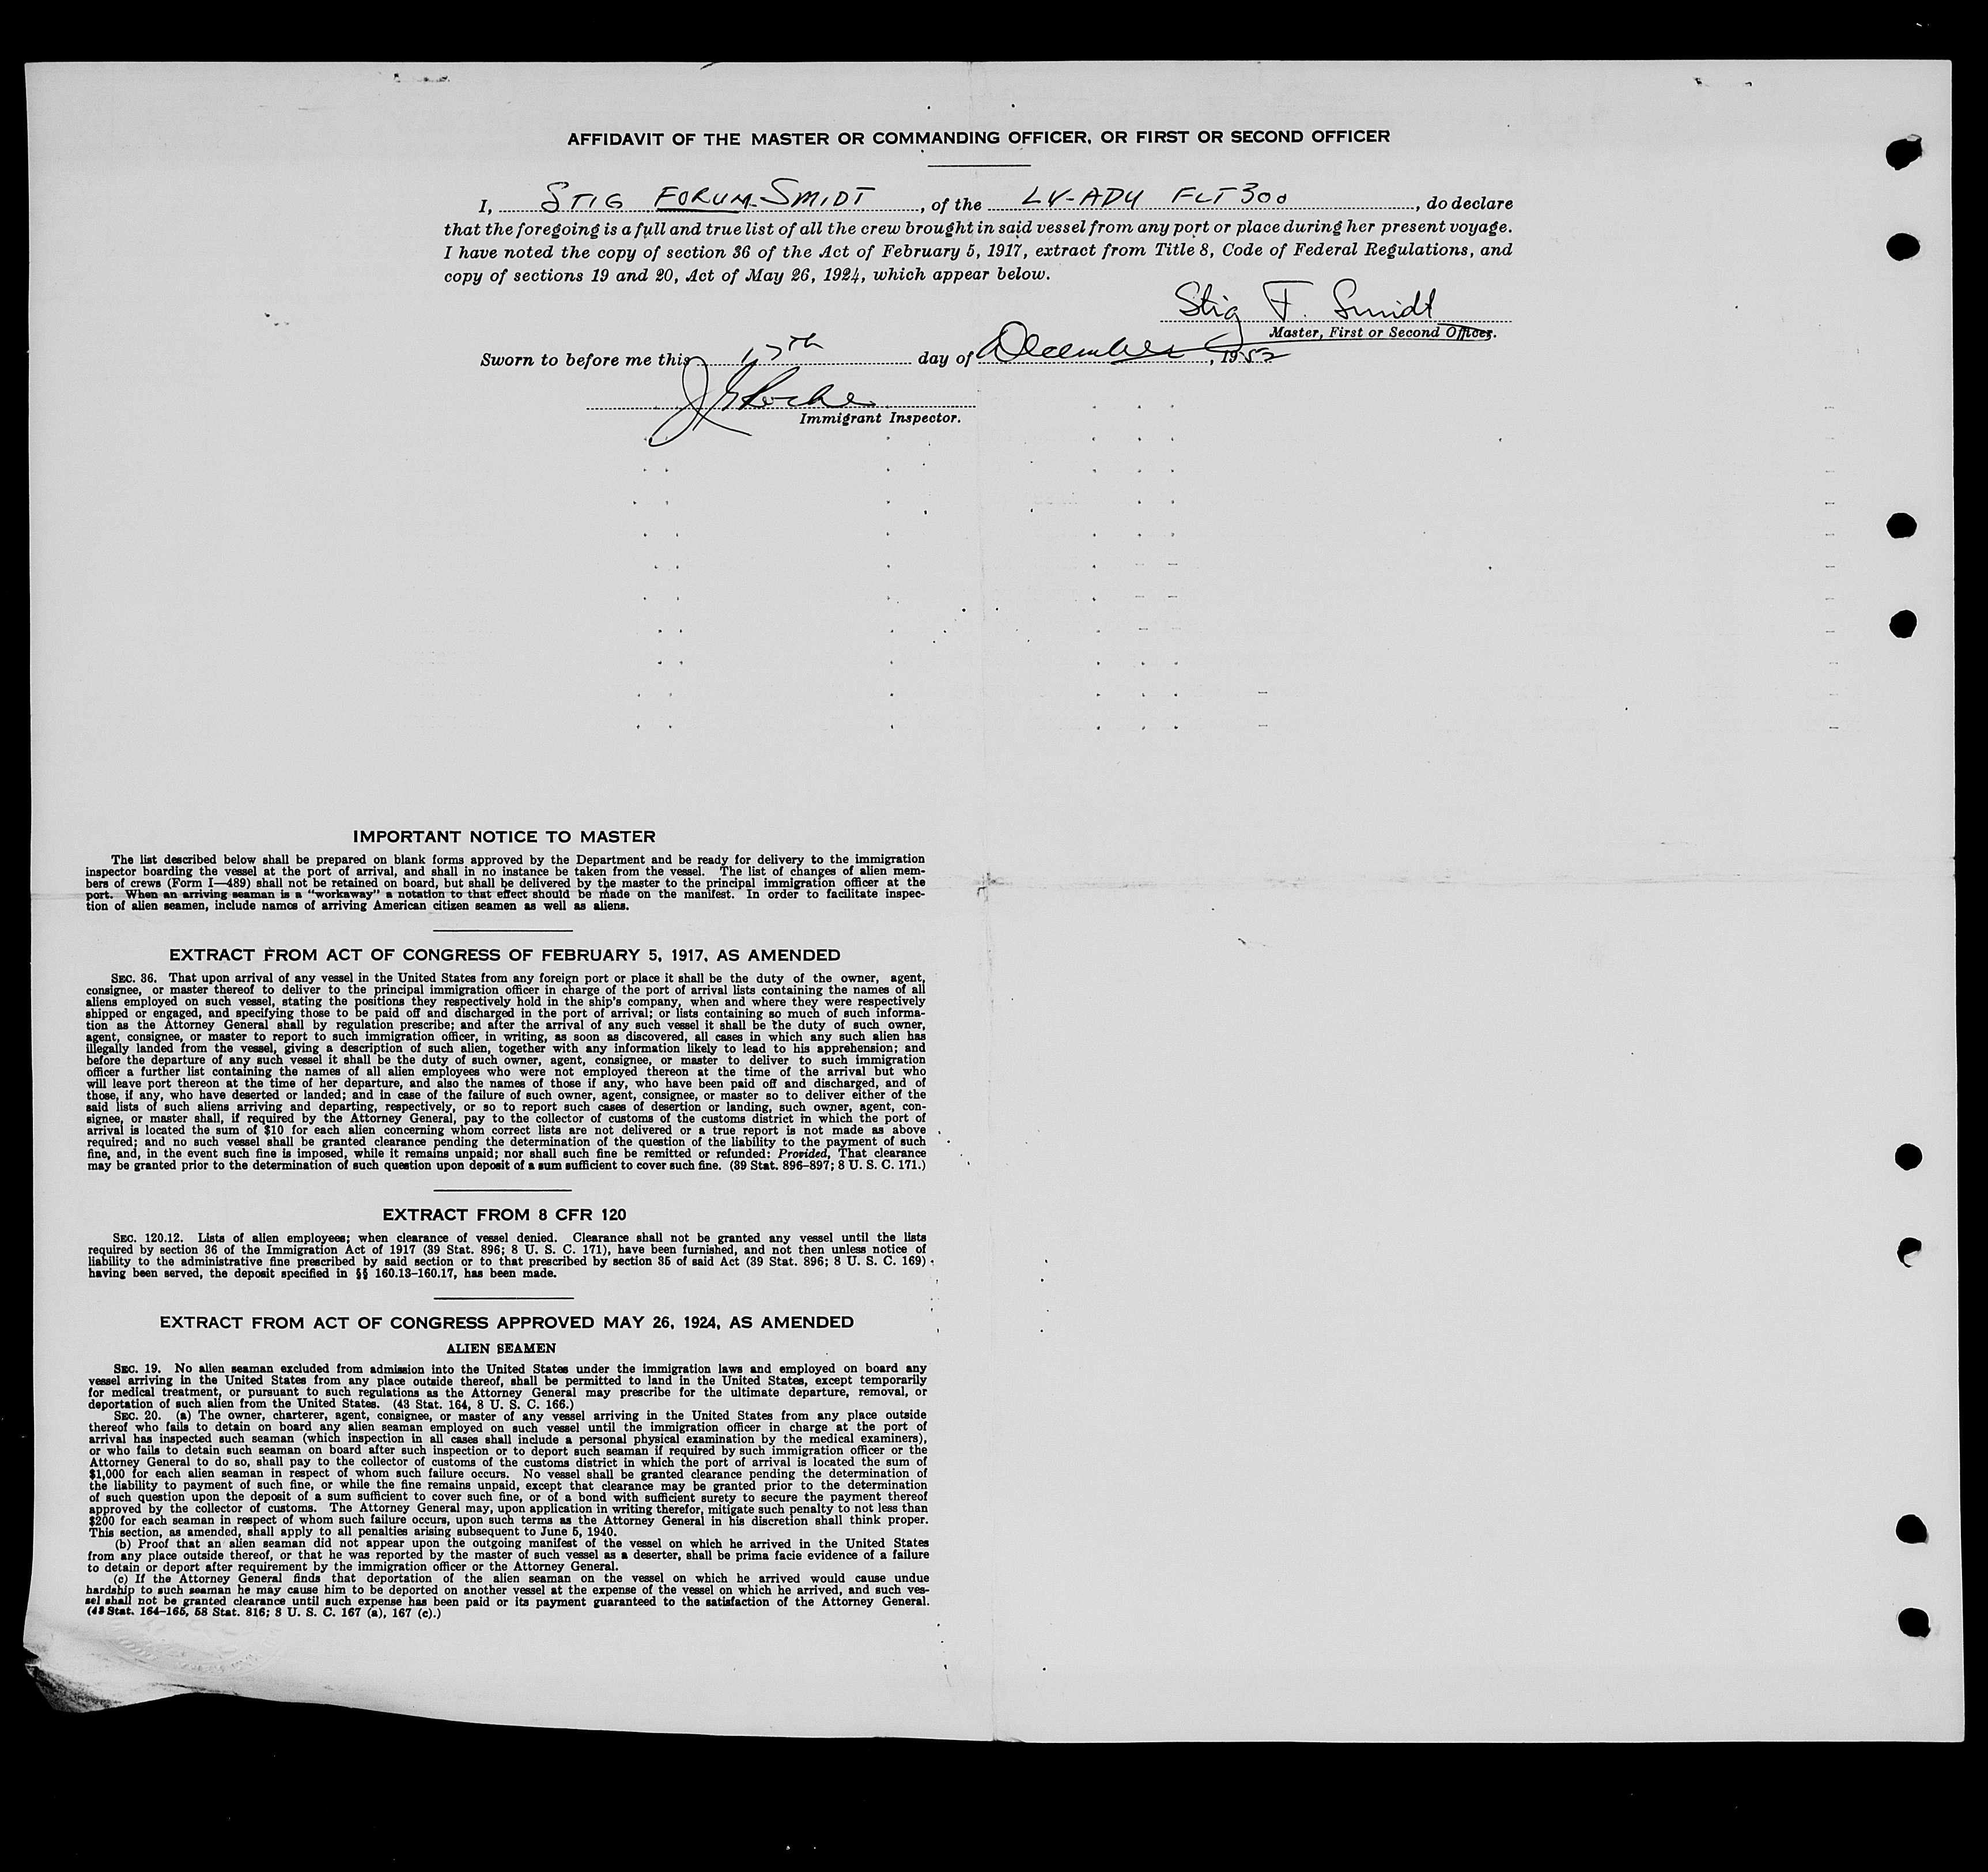 AFFIDAVIT OF THE MASTER OR COMMANDING OFFICER, OR FIRST OR SECOND OFFICER
I, STIG FORUM-SMIDT, of the LV-ADY FLT 300, do declare
that the foregoing is a full and true list of all the crew brought in said vessel from any port or place during her present voyage.
I have noted the copy of section 36 of the Act of February 5, 1917, extract from Title 8, Code of Federal Regulations, and
copy of sections 19 and 20, Act of May 26, 1924, which appear below.
Stig F. Smidt
Master, First or Second Officer.
Sworn to before me this 17th day of December, 1952
Immigrant Inspector.
IMPORTANT NOTICE TO MASTER
The list described below shall be prepared on blank forms approved by the Department and be ready for delivery to the immigration
inspector boarding the vessel at the port of arrival, and shall in no instance be taken from the vessel. The list of changes of alien mem-
bers of crews (Form I—489) shall not be retained on board, but shall be delivered by the master to the principal immigration officer at the
port. When an arriving seaman is a "workaway" a notation to that effect should be made on the manifest. In order to facilitate inspec-
tion of alien seamen, include names of arriving American citizen seamen as well as aliens.
EXTRACT FROM ACT OF CONGRESS OF FEBRUARY 5, 1917, AS AMENDED
SEC. 36. That upon arrival of any vessel in the United States from any foreign port or place it shall be the duty of the owner, agent,
consignee, or master thereof to deliver to the principal immigration officer in charge of the port of arrival lists containing the names of all
aliens employed on such vessel, stating the positions they respectively hold in the ship's company, when and where they were respectively
shipped or engaged, and specifying those to be paid off and discharged in the port of arrival; or lists containing so much of such informa-
tion as the Attorney General shall by regulation prescribe; and after the arrival of any such vessel it shall be the duty of such owner,
agent, consignee, or master to report to such immigration officer, in writing, as soon as discovered, all cases in which any such alien has
illegally landed from the vessel, giving a description of such alien, together with any information likely to lead to his apprehension; and
before the departure of any such vessel it shall be the duty of such owner, agent, consignee, or master to deliver to such immigration
officer a further list containing the names of all alien employees who were not employed thereon at the time of the arrival but who
will leave port thereon at the time of her departure, and also the names of those if any, who have been paid off and discharged, and of
those, if any, who have deserted or landed; and in case of the failure of such owner, agent, consignee, or master so to deliver either of the
said lists of such aliens arriving and departing, respectively, or so to report such cases of desertion or landing, such owner, agent, con-
signee, or master shall, if required by the Attorney General, pay to the collector of customs of the customs district in which the port of
arrival is located the sum of $10 for each alien concerning whom correct lists are not delivered or a true report is not made as above
required; and no such vessel shall be granted clearance pending the determination of the question of the liability to the payment of such
fine, and, in the event such fine is imposed, while it remains unpaid; nor shall such fine be remitted or refunded: Provided, That clearance
may be granted prior to the determination of such question upon deposit of a sum sufficient to cover such fine. (39 Stat. 896–897; 8 U. S. C. 171.)
EXTRACT FROM 8 CFR 120
SEC. 120.12. Lists of alien employees; when clearance of vessel denied. Clearance shall not be granted any vessel until the lists
required by section 36 of the Immigration Act of 1917 (39 Stat. 896; 8 U. S. C. 171), have been furnished, and not then unless notice of
liability to the administrative fine prescribed by said section or to that prescribed by section 35 of said Act (39 Stat. 896; 8 U. S. C. 169)
having been served, the deposit specified in §§ 160.13–160.17, has been made.
EXTRACT FROM ACT OF CONGRESS APPROVED MAY 26, 1924, AS AMENDED
ALIEN SEAMEN
SEC. 19. No alien seaman excluded from admission into the United States under the immigration laws and employed on board any
vessel arriving in the United States from any place outside thereof, shall be permitted to land in the United States, except temporarily
for medical treatment, or pursuant to such regulations as the Attorney General may prescribe for the ultimate departure, removal, or
deportation of such alien from the United States. (43 Stat. 164, 8 U. S. C. 166.)
SEC. 20. (a) The owner, charterer, agent, consignee, or master of any vessel arriving in the United States from any place outside
thereof who fails to detain on board any alien seaman employed on such vessel until the immigration officer in charge at the port of
arrival has inspected such seaman (which inspection in all cases shall include a personal physical examination by the medical examiners),
or who fails to detain such seaman on board after such inspection or to deport such seaman if required by such immigration officer or the
Attorney General to do so, shall pay to the collector of customs of the customs district in which the port of arrival is located the sum of
$1,000 for each alien seaman in respect of whom such failure occurs. No vessel shall be granted clearance pending the determination of
the liability to payment of such fine, or while the fine remains unpaid, except that clearance may be granted prior to the determination
of such question upon the deposit of a sum sufficient to cover such fine, or of a bond with sufficient surety to secure the payment thereof
approved by the collector of customs. The Attorney General may, upon application in writing therefor, mitigate such penalty to not less than
$200 for each seaman in respect of whom such failure occurs, upon such terms as the Attorney General in his discretion shall think proper.
This section, as amended, shall apply to all penalties arising subsequent to June 5, 1940.
(b) Proof that an alien seaman did not appear upon the outgoing manifest of the vessel on which he arrived in the United States
from any place outside thereof, or that he was reported by the master of such vessel as a deserter, shall be prima facie evidence of a failure
to detain or deport after requirement by the immigration officer or the Attorney General.
(c) If the Attorney General finds that deportation of the alien seaman on the vessel on which he arrived would cause undue
hardship to such seaman he may cause him to be deported on another vessel at the expense of the vessel on which he arrived, and such ves-
sel shall not be granted clearance until such expense has been paid or its payment guaranteed to the satisfaction of the Attorney General.
(43 Stat. 164–165, 58 Stat. 816; 8 U. S. C. 167 (a), 167 (c).)